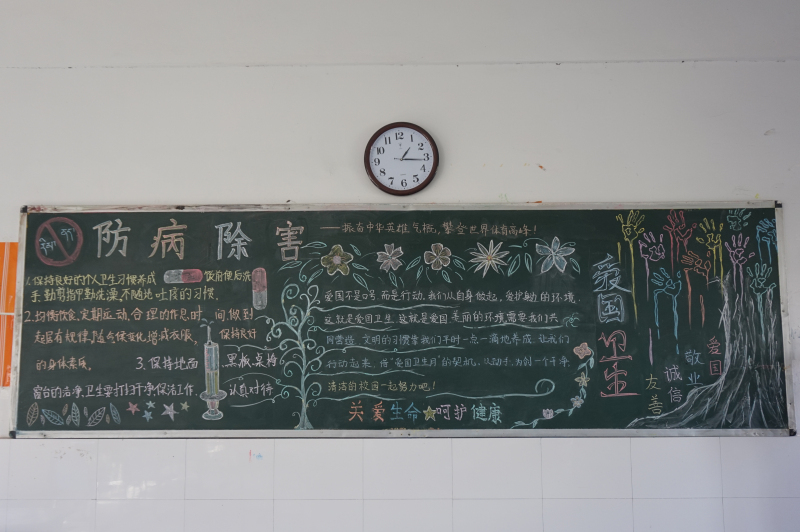 防病除害
——振奋中华英雄气概,攀登世界体育高峰!
1.保持良好的个人卫生习惯养成 饭前便后洗
手,勤剪指甲勤洗澡,不随地吐痰的习惯.
2.均衡饮食,定期运动,合理的作息时间做到
起居有规律,随气候变化,增减衣服, 保持良好
的身体素质。 3.保持地面 黑板桌椅
窗台的洁净,卫生要打扫干净保洁工作. 认真对待
爱国不是口号,而是行动.我们从自身做起,爱护触的环境.
这就是爱国卫生.这就是爱国.美丽的环境需要我们共
同营造.文明的习惯靠我们平时一点一滴地养成,让我们
行动起来,借"爱国卫生月"的契机,从动手,为创一个干净,
清洁的校园一起努力吧!
关爱生命 呵护健康
爱国卫生
友善
诚信
敬业
爱国
12
1
2
3
4
5
6
7
8
9
10
11